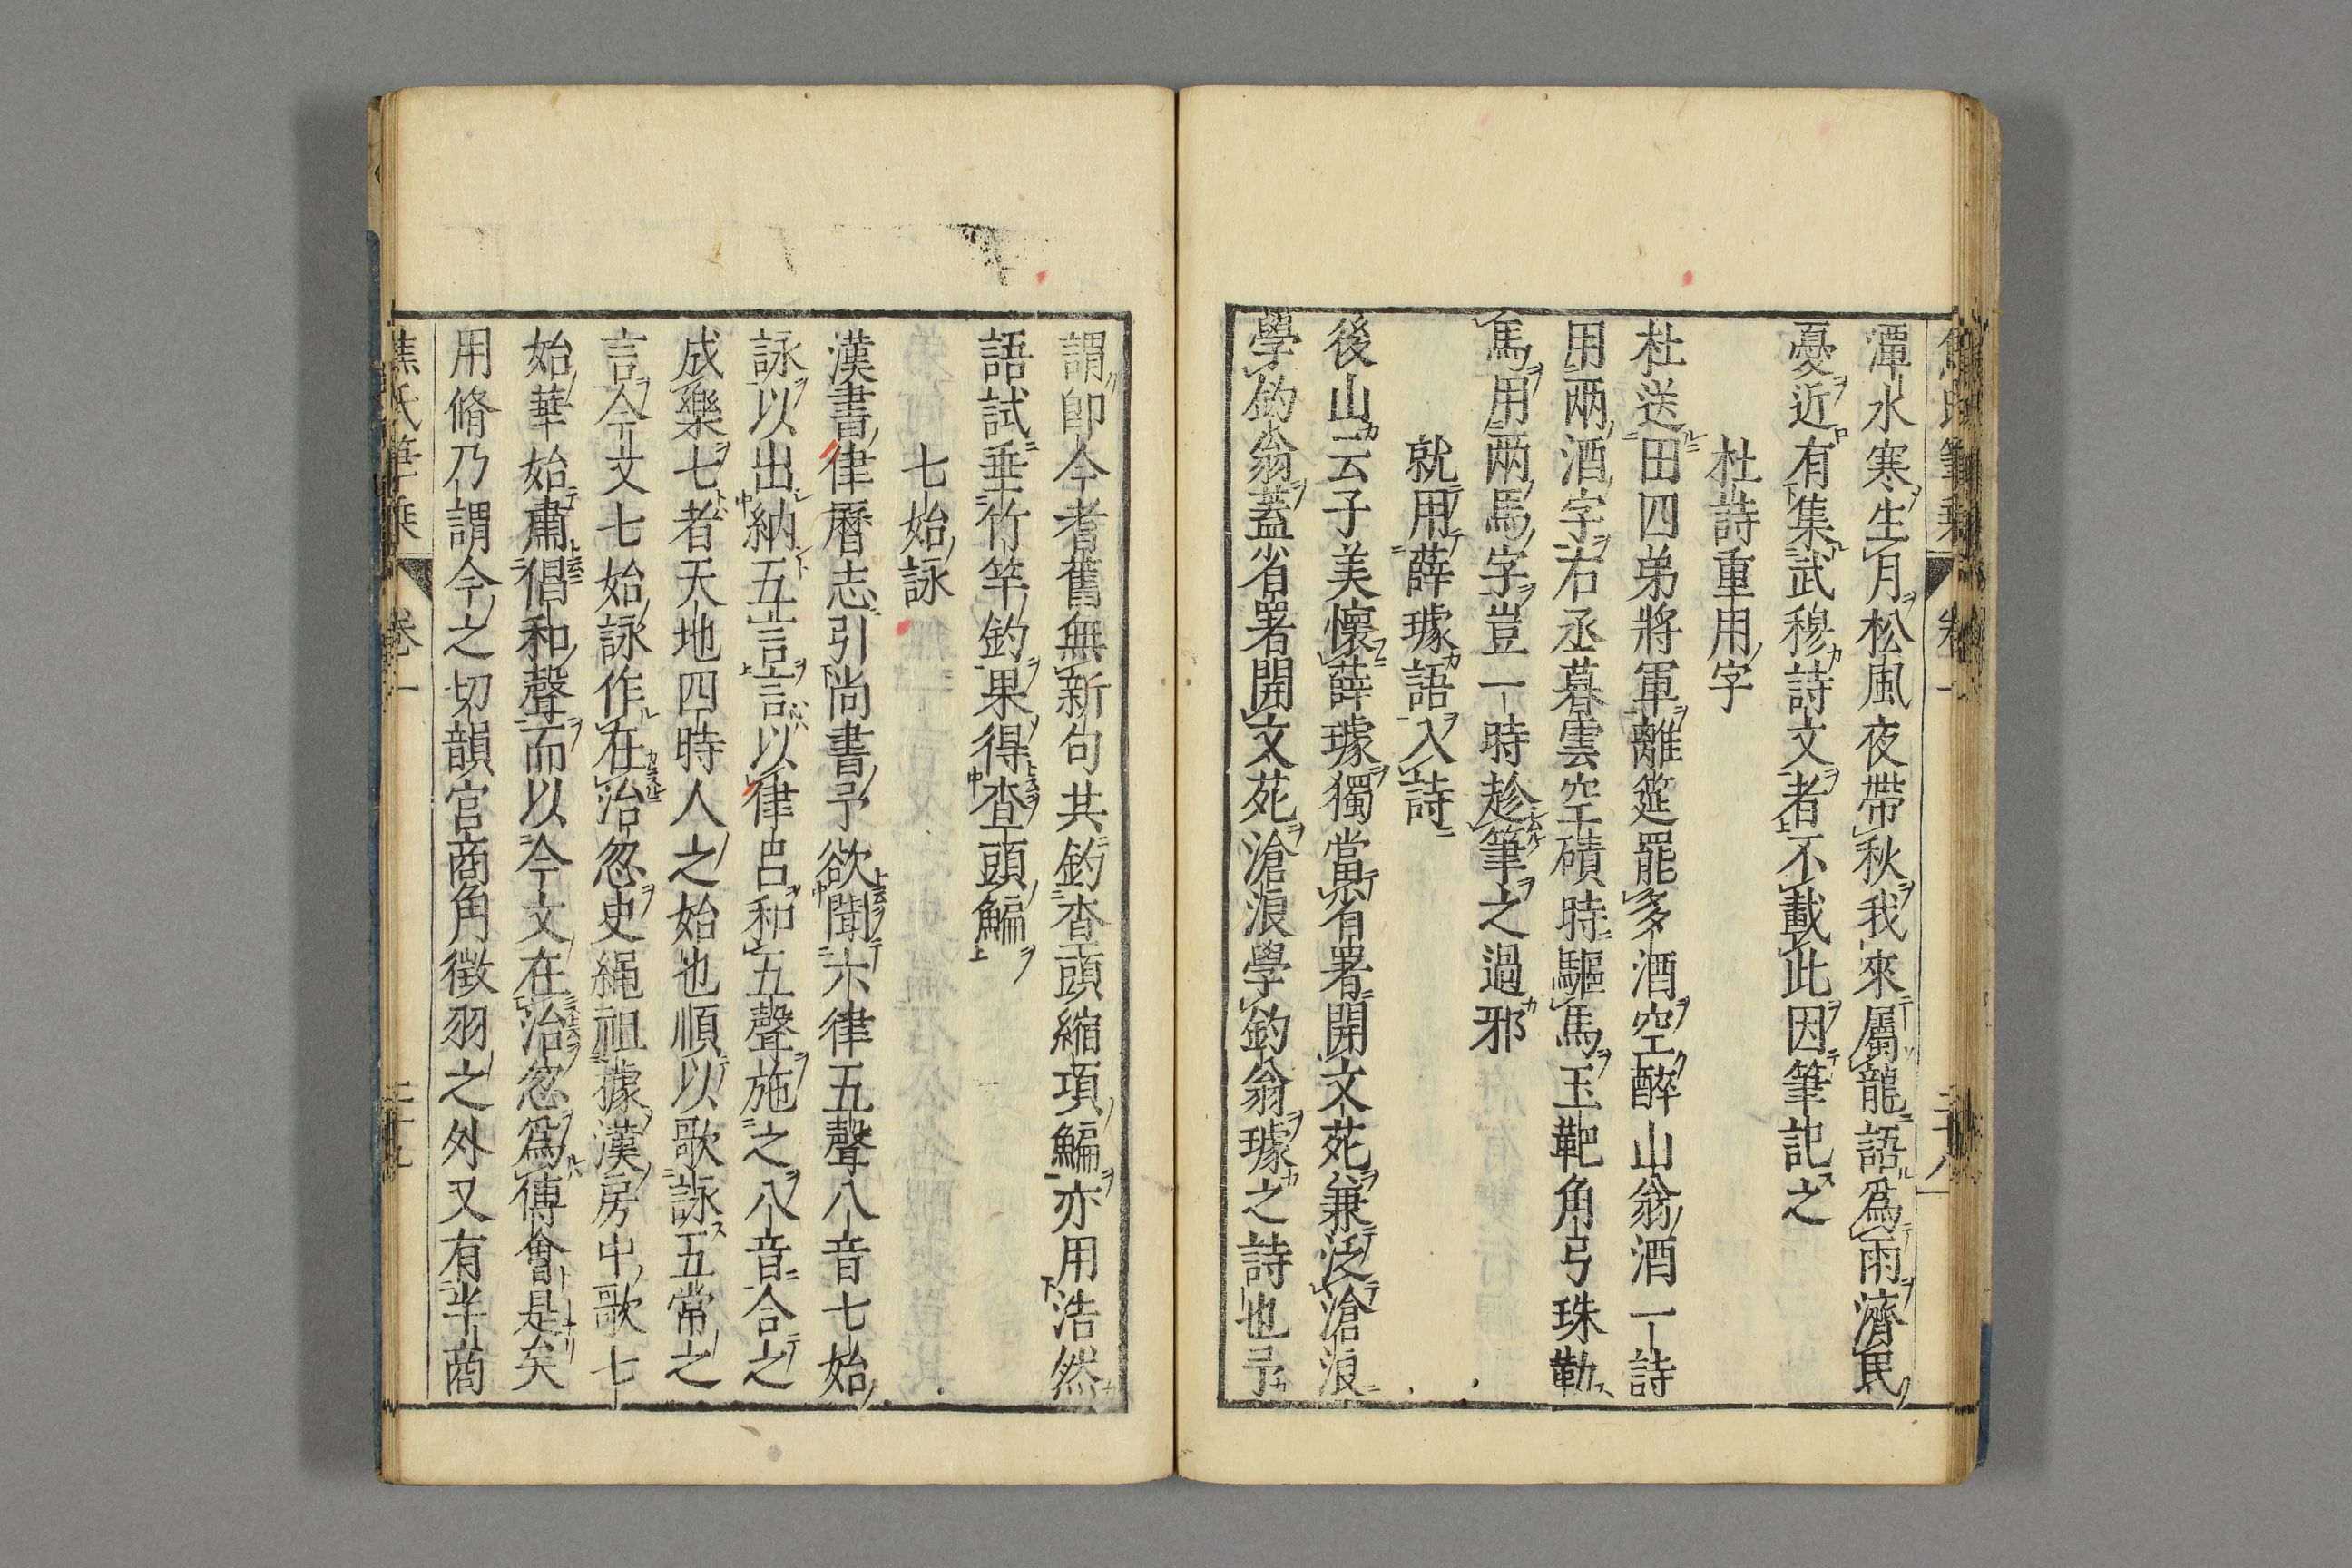 潭水寒生月松風夜帶秋我來屬龍語爲雨濟民
憂近有集武穆詩文者不載此因筆記之
杜詩重用字
杜送田四弟將軍離筵罷多酒空醉山翁酒一詩
用兩酒字右丞暮雲空磧時驅馬玉靶角弓珠勒
馬用兩馬字豈一時趁筆之過邪
就用薛璩語入詩
後山云子美懷薛璩獨當省署開文苑兼泛滄浪
學釣翁蓋省署開文苑滄浪學釣翁璩之詩也予
謂卽今耆舊無新句共釣查頭縮項鯿亦用浩然
語試垂竹竿釣果得查頭鯿
七始詠
漢書律曆志引尚書予欲聞六律五聲八音七始
詠以出納五言言以律呂和五聲施之八音合之
成樂七者天地四時人之始也順以歌詠五常之
言今文七始詠作在治忽史繩祖據漢房中歌七
始華始肅倡和聲而以今文在治忽爲傅會是矣
用脩乃謂今之切韻宮商角徵羽之外又有半商
焦氏筆乘 卷一 二十九